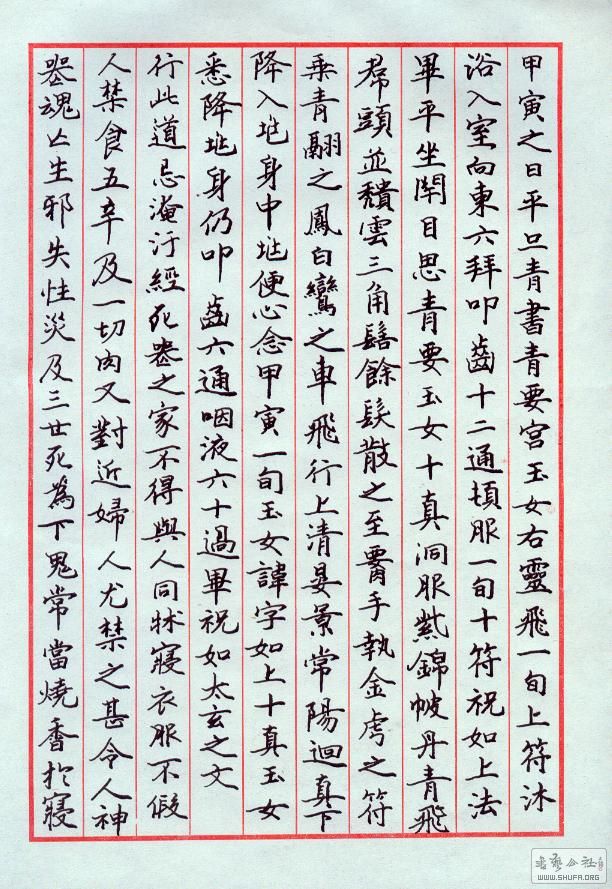 甲寅之日平旦青書青要宮玉女右靈飛一旬上符沐
浴入室向東六拜叩齒十二通頓服一旬十符祝如上法
畢平坐閉目思青要玉女十真洞服紫錦帔丹青飛
帬頭並頹雲三角髻餘髮散之至䈥手執金虎之符
乘青翮之鳳白鸞之車飛行上清晏景常陽迴真下
降入兆身中兆便心念甲寅一旬玉女諱字如上十真玉女
悉降兆身仍叩齒六通咽液六十過畢祝如太玄之文
行此道忌淹汙經死喪之家不得與人同牀寢衣服不假
人禁食五辛及一切肉又對近婦人尤禁之甚令人神
喪魂亡生邪失性災及三世死為下鬼常當燒香於寢
書藝公社
WWW.SHUFA.ORG